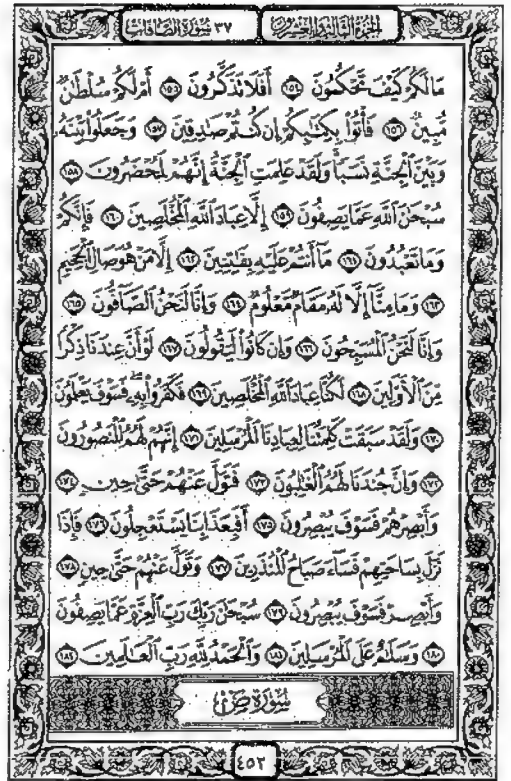 الجزء الثالث والعشرون ٣٧ سورة الصافات
مَالَكُمْ كَيْفَ تَحْكُمُونَ ١٥٤ أَفَلَا تَذَكَّرُونَ ١٥٥ أَمْ لَكُمْ سُلْطَٰنٌ
مُّبِينٌ ١٥٦ فَأْتُوا۟ بِكِتَٰبِكُمْ إِن كُنتُمْ صَٰدِقِينَ ١٥٧ وَجَعَلُوا۟ بَيْنَهُۥ
وَبَيْنَ ٱلْجِنَّةِ نَسَبًا وَلَقَدْ عَلِمَتِ ٱلْجِنَّةُ إِنَّهُمْ لَمُحْضَرُونَ ١٥٨
سُبْحَٰنَ ٱللَّهِ عَمَّا يَصِفُونَ ١٥٩ إِلَّا عِبَادَ ٱللَّهِ ٱلْمُخْلَصِينَ ١٦٠ فَإِنَّكُمْ
وَمَا تَعْبُدُونَ ١٦١ مَآ أَنتُمْ عَلَيْهِ بِفَٰتِنِينَ ١٦٢ إِلَّا مَنْ هُوَ صَالِ ٱلْجَحِيمِ
١٦٣ وَمَا مِنَّآ إِلَّا لَهُۥ مَقَامٌ مَّعْلُومٌ ١٦٤ وَإِنَّا لَنَحْنُ ٱلصَّآفُّونَ ١٦٥
وَإِنَّا لَنَحْنُ ٱلْمُسَبِّحُونَ ١٦٦ وَإِن كَانُوا۟ لَيَقُولُونَ ١٦٧ لَوْ أَنَّ عِندَنَا ذِكْرًا
مِّنَ ٱلْأَوَّلِينَ ١٦٨ لَكُنَّا عِبَادَ ٱللَّهِ ٱلْمُخْلَصِينَ ١٦٩ فَكَفَرُوا۟ بِهِۦ فَسَوْفَ يَعْلَمُونَ
١٧٠ وَلَقَدْ سَبَقَتْ كَلِمَتُنَا لِعِبَادِنَا ٱلْمُرْسَلِينَ ١٧١ إِنَّهُمْ لَهُمُ ٱلْمَنصُورُونَ
١٧٢ وَإِنَّ جُندَنَا لَهُمُ ٱلْغَٰلِبُونَ ١٧٣ فَتَوَلَّ عَنْهُمْ حَتَّىٰ حِينٍ ١٧٤
وَأَبْصِرْهُمْ فَسَوْفَ يُبْصِرُونَ ١٧٥ أَفَبِعَذَابِنَا يَسْتَعْجِلُونَ ١٧٦ فَإِذَا
نَزَلَ بِسَاحَتِهِمْ فَسَآءَ صَبَاحُ ٱلْمُنذَرِينَ ١٧٧ وَتَوَلَّ عَنْهُمْ حَتَّىٰ حِينٍ ١٧٨
وَأَبْصِرْ فَسَوْفَ يُبْصِرُونَ ١٧٩ سُبْحَٰنَ رَبِّكَ رَبِّ ٱلْعِزَّةِ عَمَّا يَصِفُونَ
١٨٠ وَسَلَٰمٌ عَلَى ٱلْمُرْسَلِينَ ١٨١ وَٱلْحَمْدُ لِلَّهِ رَبِّ ٱلْعَٰلَمِينَ ١٨٢
سُورَةُ صٓ
٤٥٢